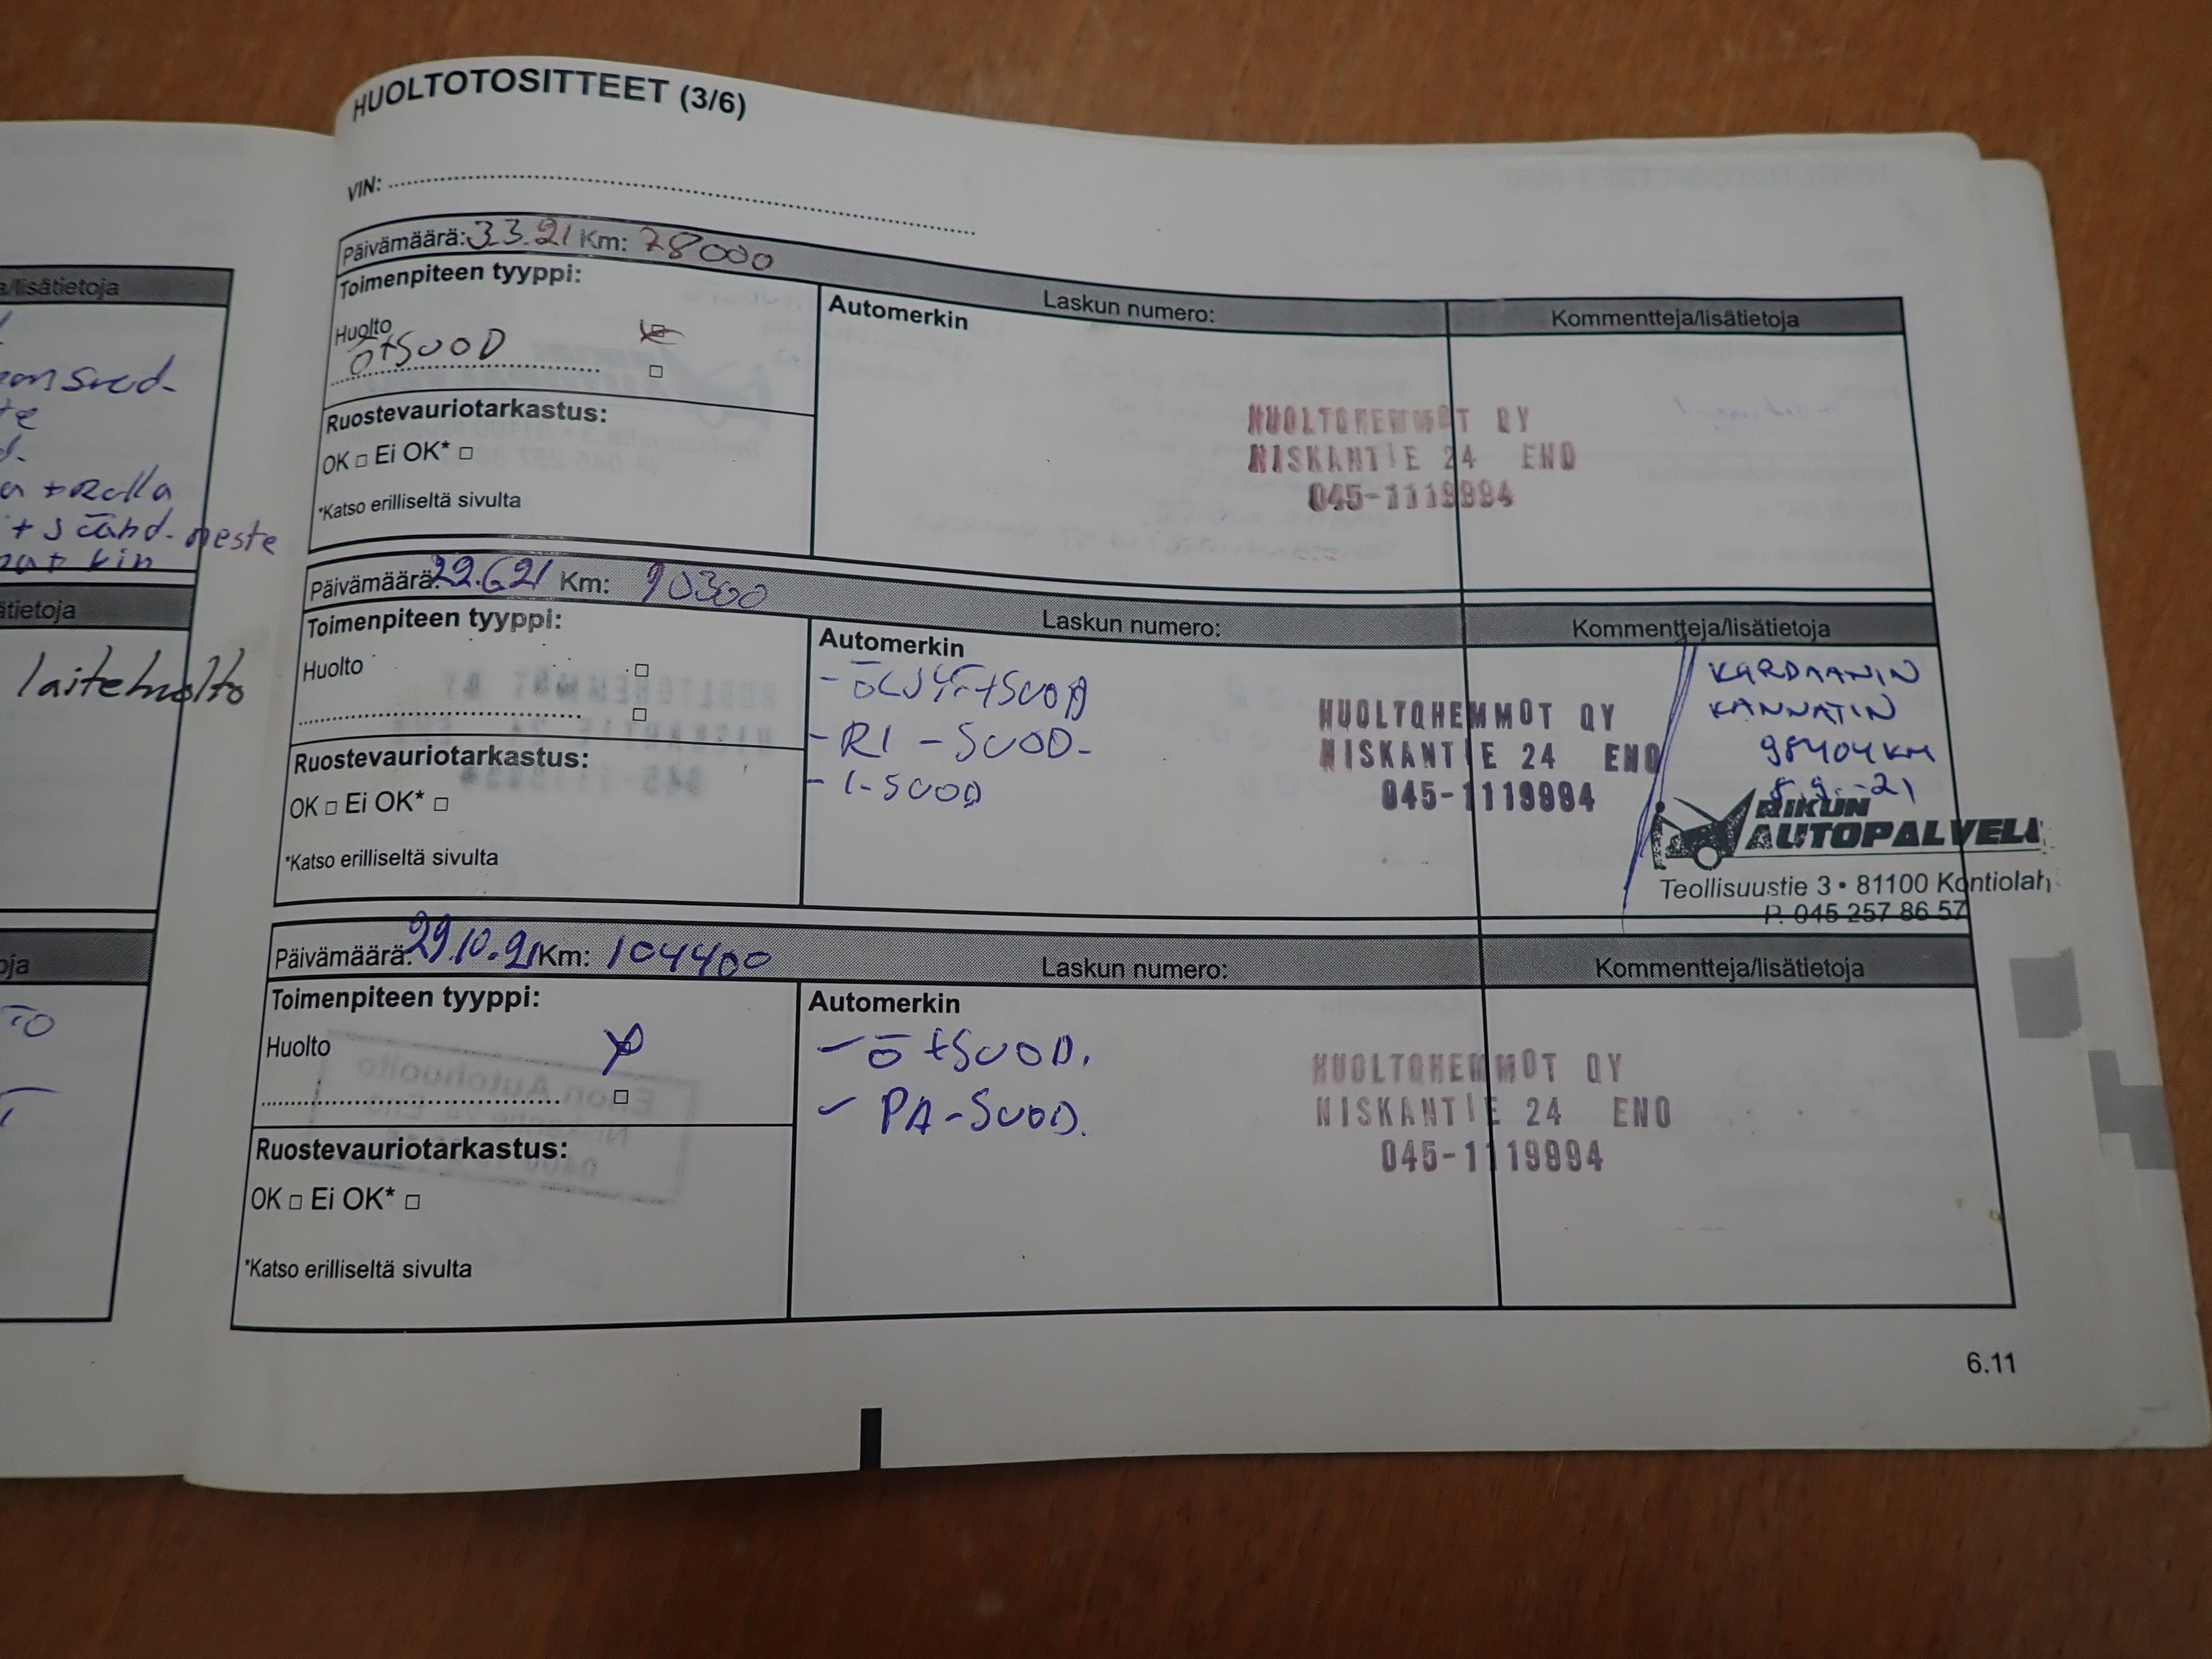 HUOLTOTOSITTEET (3/6)
VIN:
Päivämäärä: 3.3.21 Km: 78000
Laskun numero:
Kommentteja/lisätietoja
Toimenpiteen tyyppi:
Automerkin
Huolto
Ö+SUOD
Ruostevauriotarkastus:
OK □ Ei OK* □
*Katso erilliseltä sivulta
HUOLTOHEMMOT OY
NISKANTIE 24 ENO
045-1119994
Päivämäärä: 22.6.21 Km: 90300
Laskun numero:
Kommentteja/lisätietoja
Toimenpiteen tyyppi:
Automerkin
Huolto
- ÖLJYT+SUOD
- RI-SUOD-
- I-SUOD
Ruostevauriotarkastus:
OK □ Ei OK* □
*Katso erilliseltä sivulta
HUOLTOHEMMOT OY
NISKANTIE 24 ENO
045-1119994
KARDAANIN
KANNATIN
98404KM
8.9.-21
RIKUN
AUTOPALVELU
Teollisuustie 3 • 81100 Kontiolah
P. 045 257 86 57
Päivämäärä: 29.10.21 Km: 104400
Laskun numero:
Kommentteja/lisätietoja
Toimenpiteen tyyppi:
Automerkin
Huolto
- Ö+SUOD.
- PA-SUOD.
Ruostevauriotarkastus:
OK □ Ei OK* □
*Katso erilliseltä sivulta
HUOLTOHEMMOT OY
NISKANTIE 24 ENO
045-1119994
6.11
a/lisätietoja
neste
laitehuolto